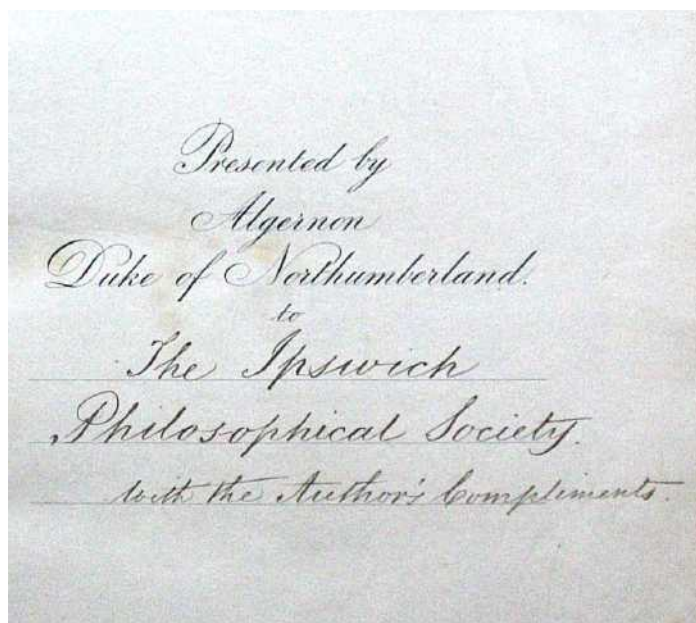 Presented by
Algernon
Duke of Northumberland.
to
The Ipswich
Philosophical Society.
with the Author's Compliments.